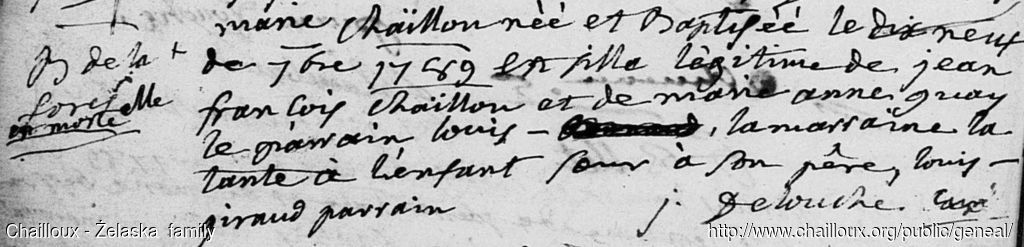 marie Chaillou néé et Baptiséé le dix neuf
B de la
de 7bre 1769 est fille légitime de jean
forest elle
françois Chaillou et de marie anne quay
est morte
le parrain louis - , la marraine la
tante à l'enfant sœur à son père, louis -
giraud parrain j. Delouche.
Chailloux - Żelaska family
http://www.chailloux.org/public/geneal/